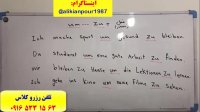 اینستاگرام:
@alikianpour1987
um ... zu +
Ich mache Sport um gesund zu bleiben.
Du studierst um eine gute Arbeit zu finden.
Wir bleiben zu Hause um die Lektionen zu lernen
Ich gehe ins Kino um eine Filme zu sehen.
تلفن رزرو کلاس
۰۹۱۶ ۵۳۲ ۱۵ ۶۳